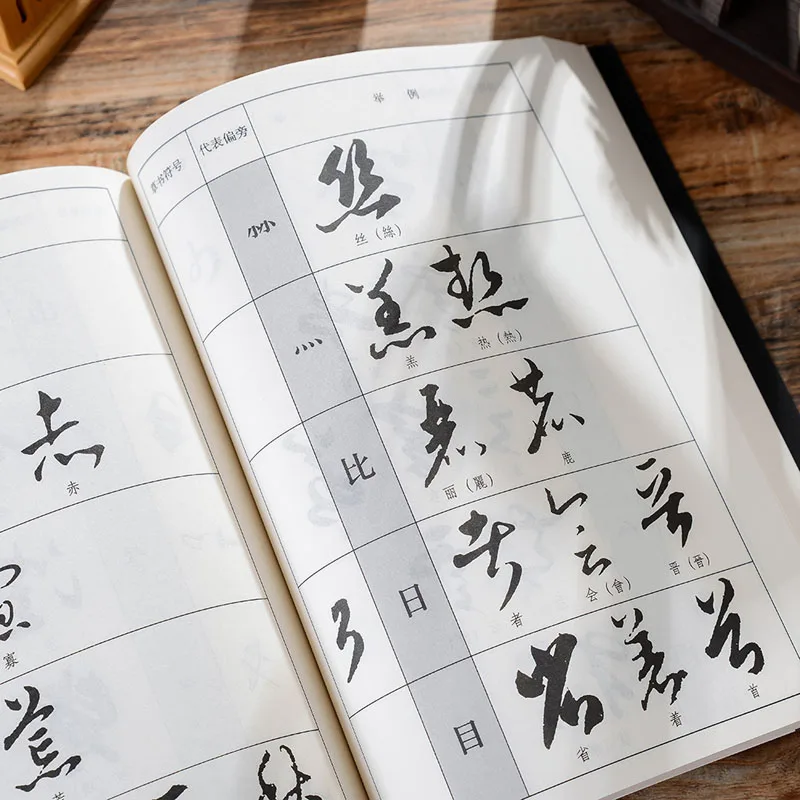 草书符号 代表偏旁 举例
丝（絲）
灬
羔 热（熱）
比
丽（麗） 鹿
日
者 会（會） 晋（晉）
目
省 着 首
赤
寡